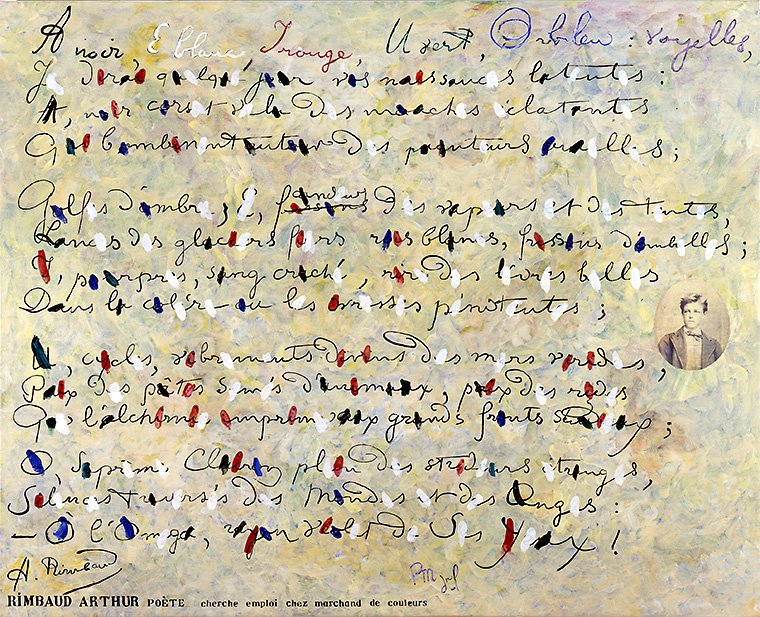 A noir, E blanc, I rouge, U vert, O bleu : voyelles,
Je dirai quelque jour vos naissances latentes :
A, noir corset velu des mouches éclatantes
Qui bombinent autour des puanteurs cruelles ;
Golfes d'ombre ; E, frissons candeurs des vapeurs et des tentes,
Lances des glaciers fiers, rois blancs, frissons d'ombelles ;
I, pourpres, sang craché, rire des lèvres belles
Dans la colère ou les ivresses pénitentes ;
U, cycles, vibrements divins des mers virides,
Paix des pâtis semés d'animaux, paix des rides
Que l'alchimie imprime aux grands fronts studieux ;
O, Suprême Clairon plein des strideurs étranges,
Silences traversés des Mondes et des Anges :
– O l'Oméga, rayon violet de Ses Yeux !
A. Rimbaud
RIMBAUD ARTHUR POÈTE cherche emploi chez marchand de couleurs